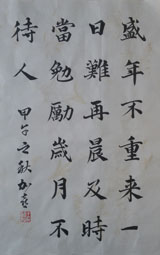 盛年不重来一
日難再晨及時
當勉勵歲月不
待人
甲午之秋